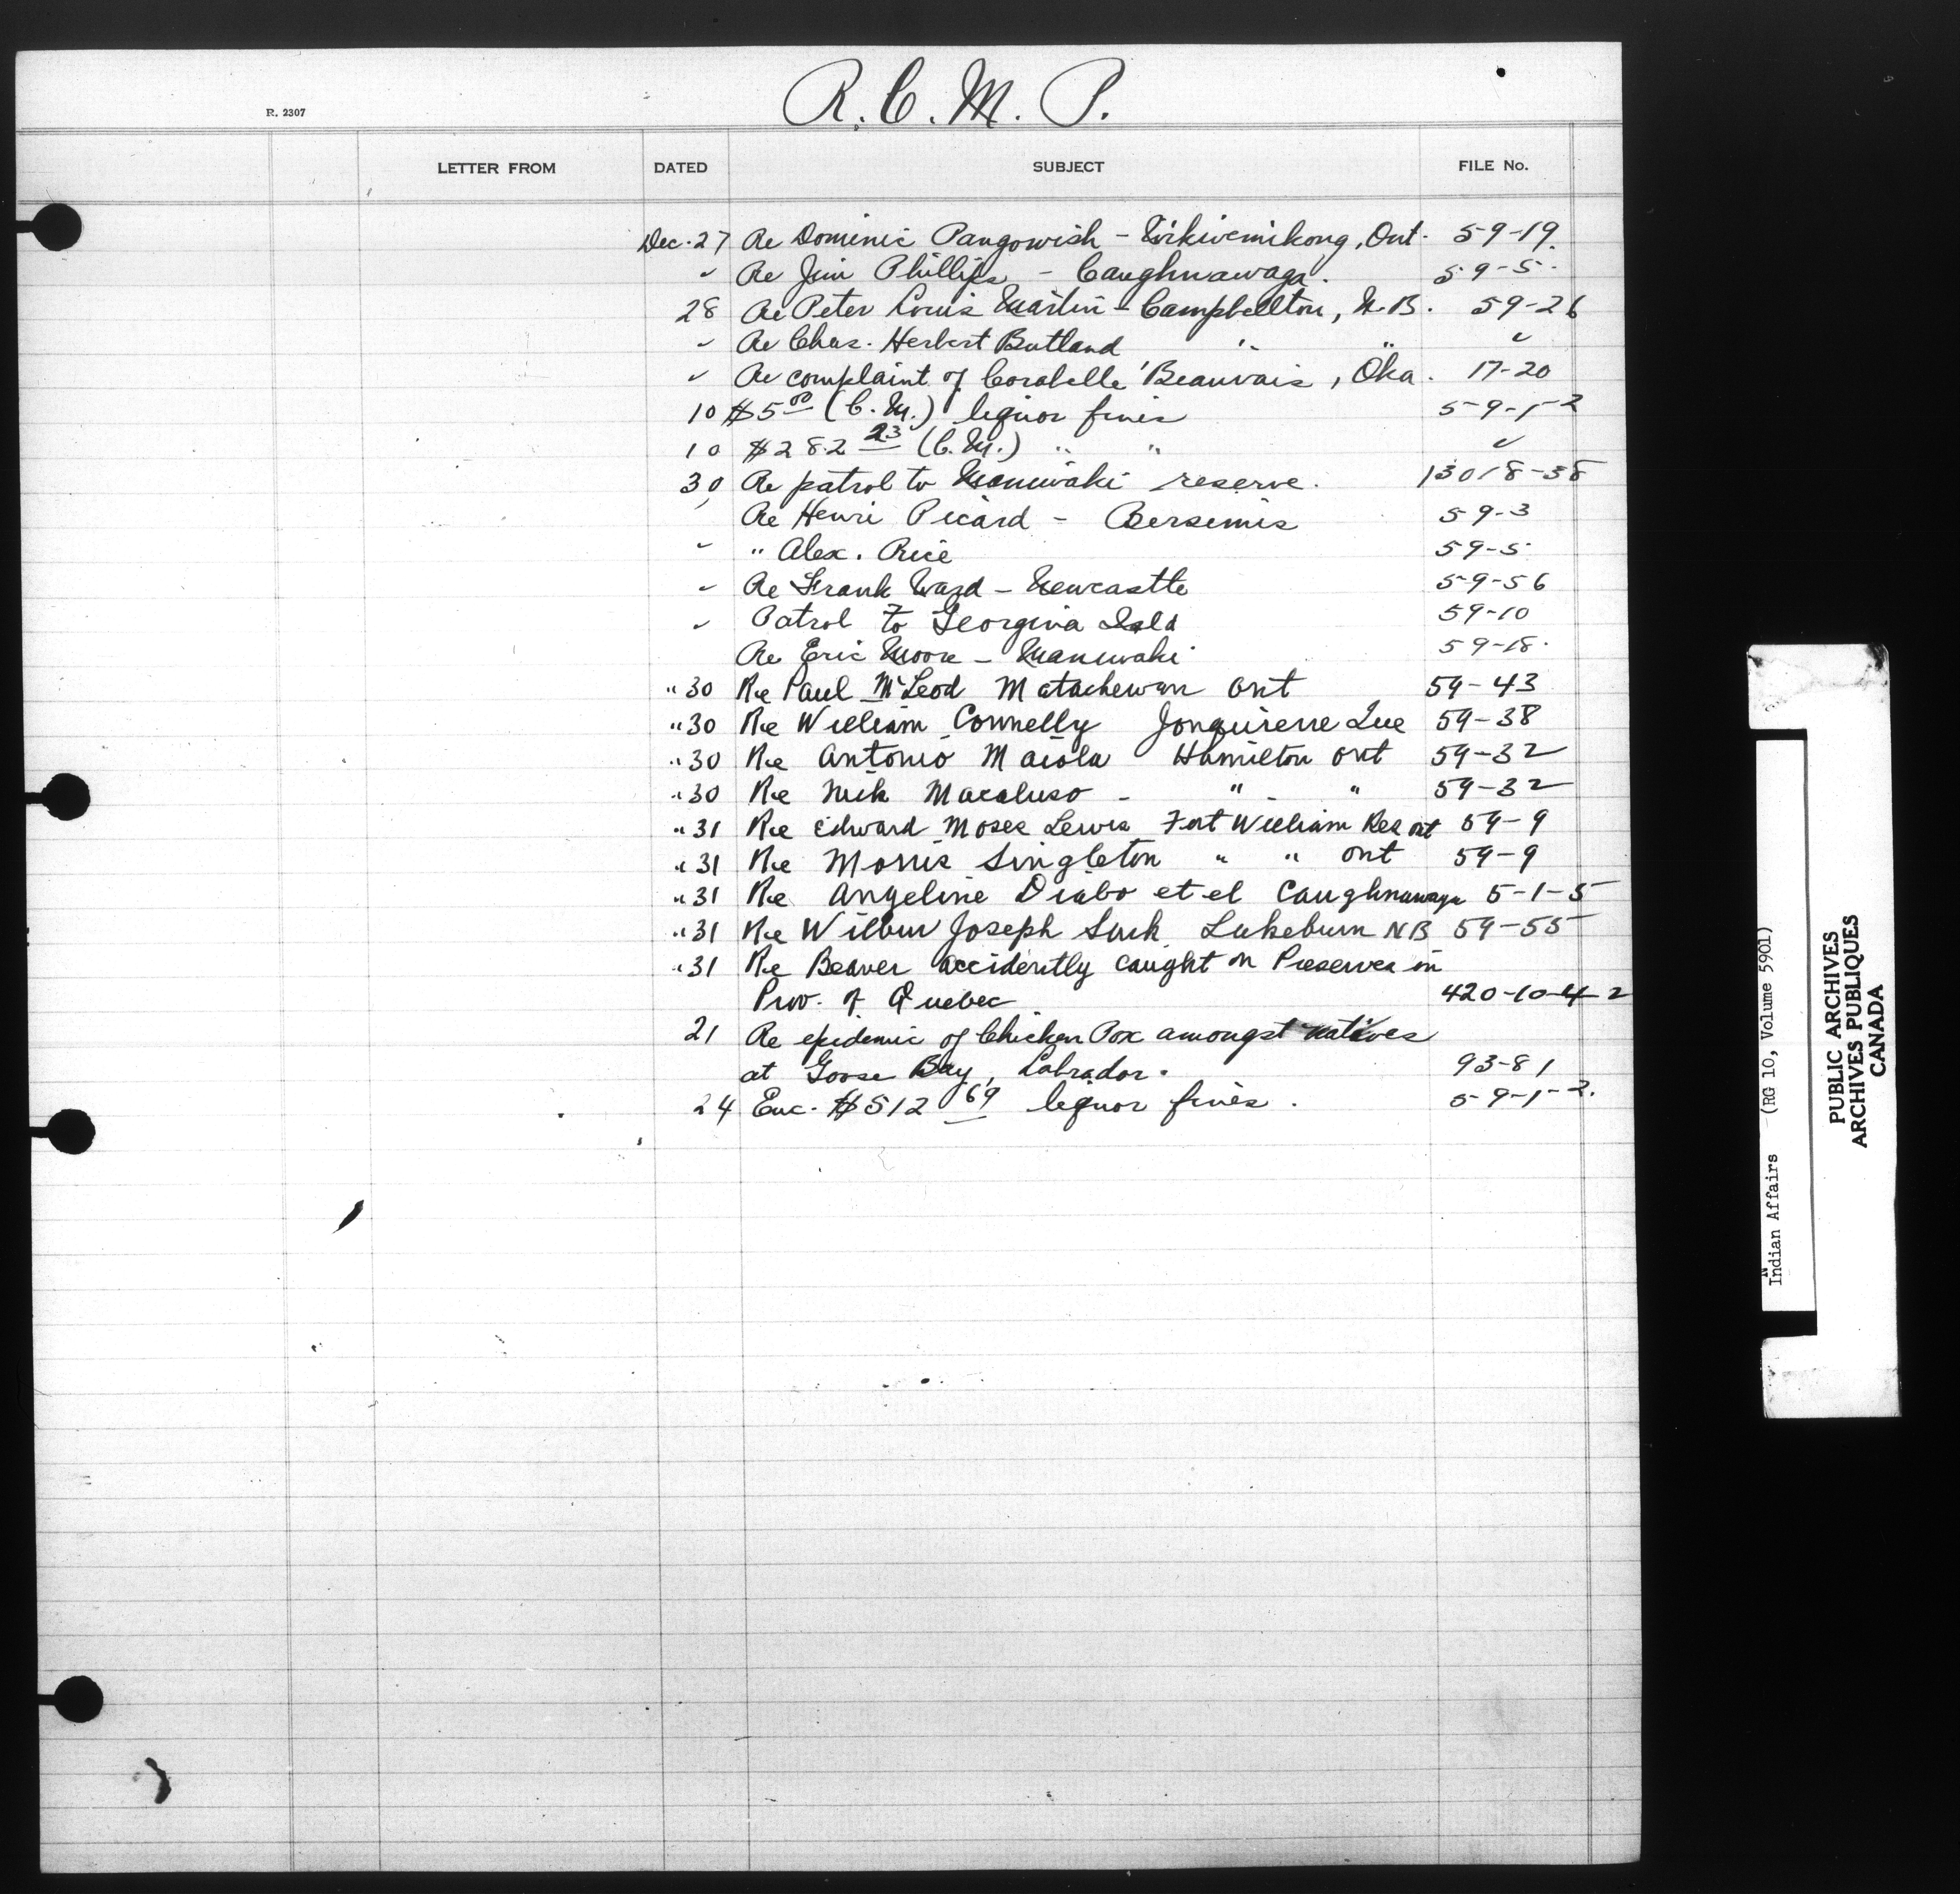 R. C. M. P.
R. 2307
LETTER FROM DATED SUBJECT FILE No.
Dec. 27 Re Dominic Pangowish - Wikwemikong, Ont. 59-19.
" Re Jim Phillips - Caughnawaga. 59-5.
28 Re Peter Louis Martin - Campbellton, N.B. 59-26
" Re Chas. Herbert Butland " " "
" Re complaint of Corabelle Beauvais, Oka. 17-20
10 $5 00 (C.M.) liquor fines 59-1-2
10 $282 23 (C.M.) " " "
30 Re patrol to Maniwaki reserve. 13018-38
Re Henri Picard - Bersimis 59-3
" " Alex. Rice 59-5
" Re Frank Ward - Newcastle 59-56
" Patrol to Georgina Isld 59-10
Re Eric Moore - Maniwaki 59-18.
" 30 Re Paul McLeod Matachewan Ont 59-43
" 30 Re William Connelly Jonquierre Que 59-38
" 30 Re Antonio Maiola Hamilton Ont 59-32
" 30 Re Nick Macaluso - " - " 59-32
" 31 Re Edward Moses Lewis Fort William Res Ont 59-9
" 31 Re Morris Singleton " " Ont 59-9
" 31 Re Angeline Diabo et el Caughnawaga 5-1-5
" 31 Re Wilbur Joseph Lakeburn NB 59-55
" 31 Re Beaver accidently caught on Preserves in
Prov. of Quebec 420-10-4-2
21 Re epidemic of Chicken Pox amongst natives
at Goose Bay, Labrador. 93-81
24 Enc. $512 69 liquor fines. 59-1-2.
Indian Affairs (RG 10, Volume 5901)
PUBLIC ARCHIVES
ARCHIVES PUBLIQUES
CANADA